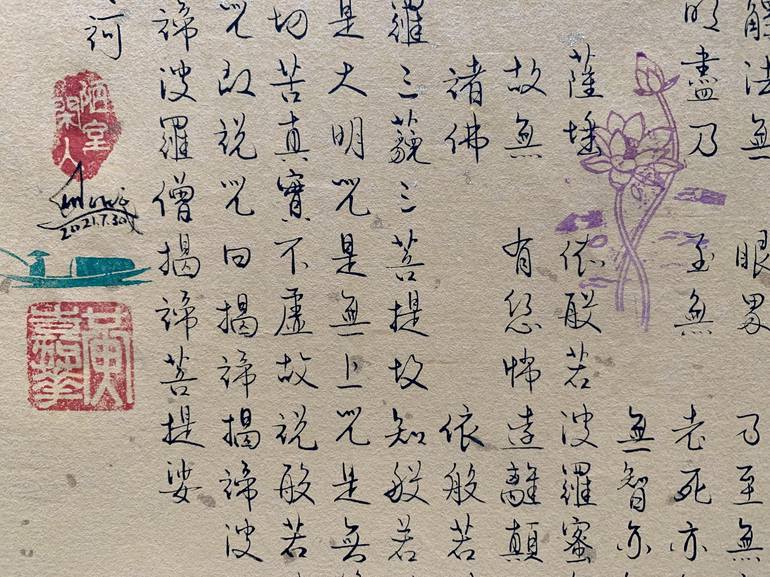 觸法無眼界乃至無
明盡乃至無老死亦
無智亦
薩埵依般若波羅蜜
故無有恐怖遠離顛
諸佛依般若
羅三藐三菩提故知般若
是大明咒是無上咒是無
切苦真實不虛故說般若
咒即說咒曰揭諦揭諦波
諦波羅僧揭諦菩提娑
訶
2021.7.30